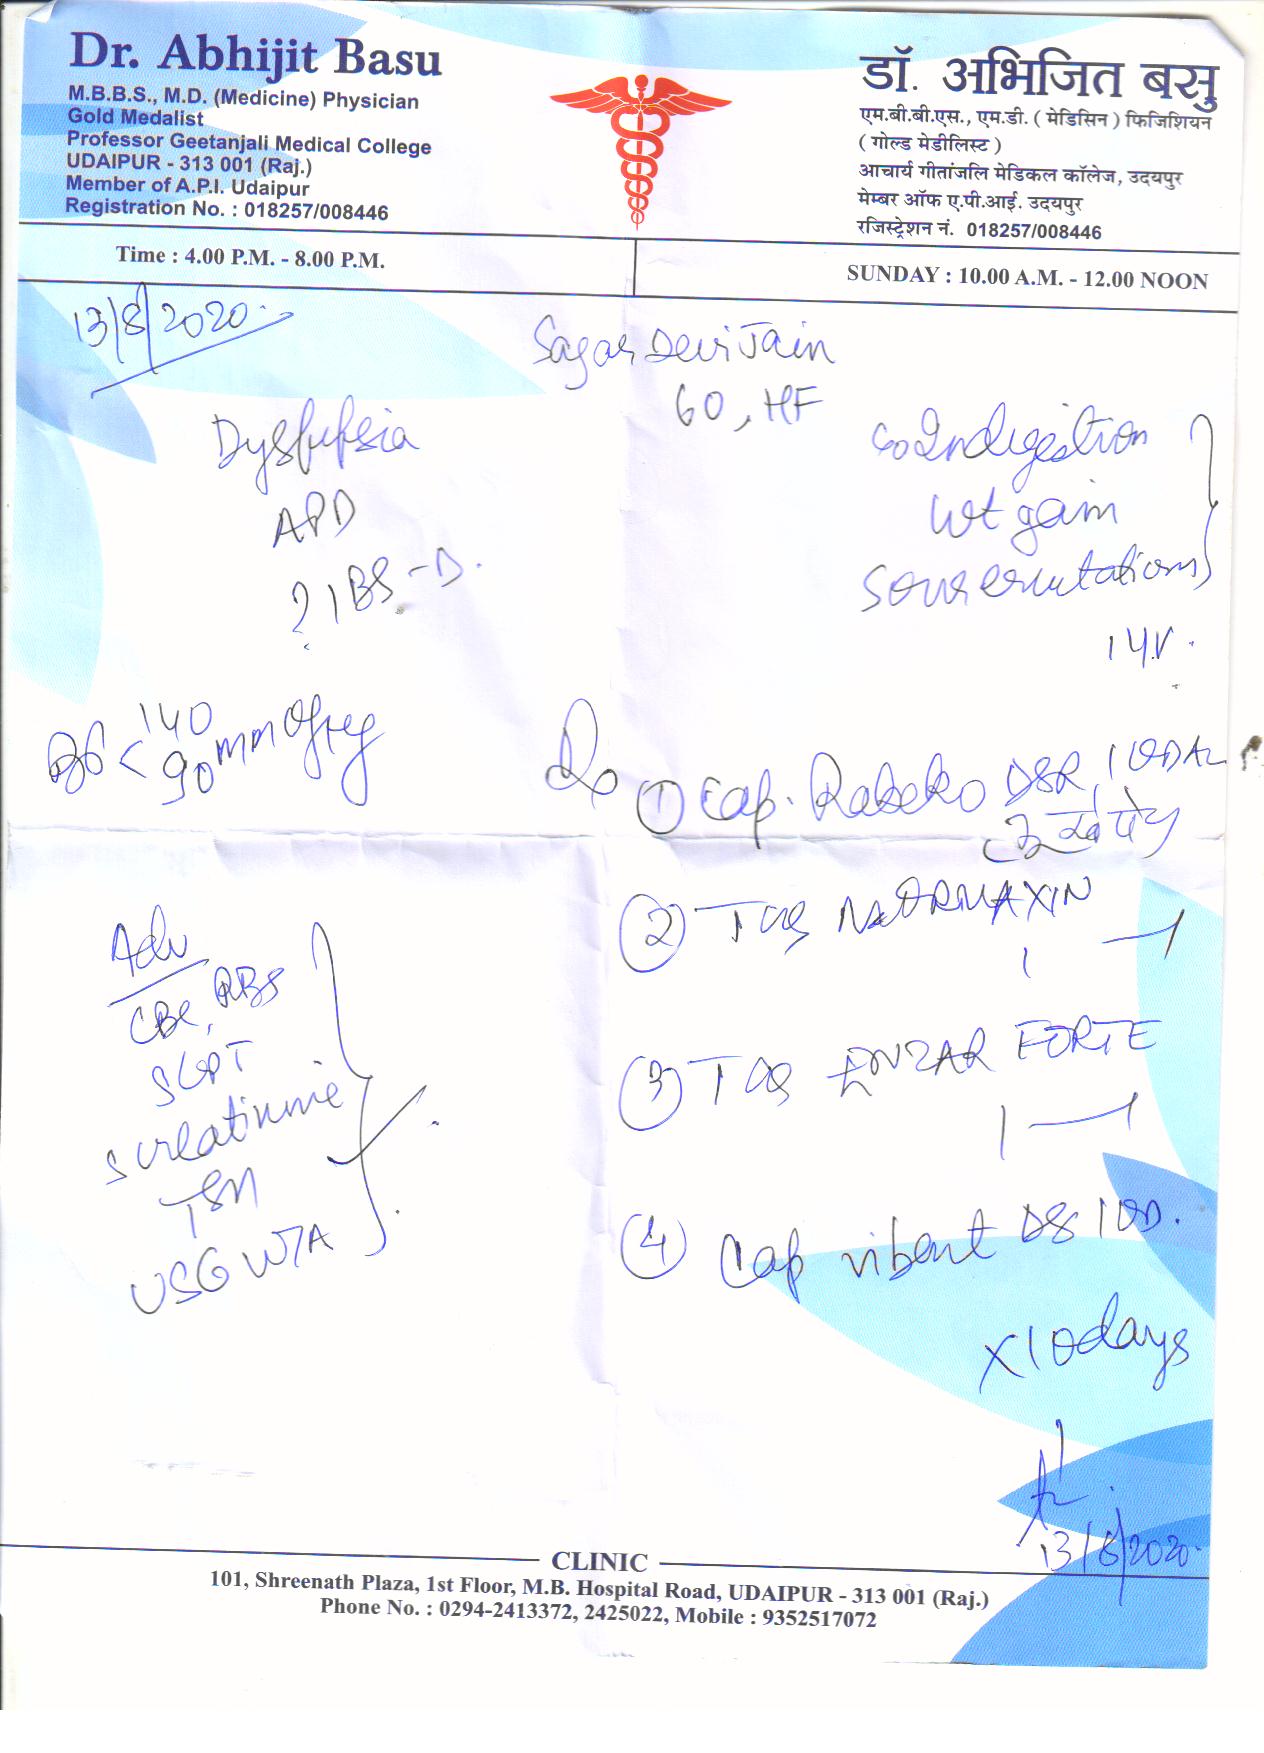 Dr. Abhijit Basu
M.B.B.S., M.D. (Medicine) Physician
Gold Medalist
Professor Geetanjali Medical College
UDAIPUR - 313 001 (Raj.)
Member of A.P.I. Udaipur
Registration No. : 018257/008446
डॉ. अभिजित बसु
एम.बी.बी.एस., एम.डी. ( मेडिसिन ) फिजिशियन
( गोल्ड मेडीलिस्ट )
आचार्य गीतांजलि मेडिकल कॉलेज, उदयपुर
मेम्बर ऑफ ए.पी.आई. उदयपुर
रजिस्ट्रेशन नं. 018257/008446
Time : 4.00 P.M. - 8.00 P.M.
SUNDAY : 10.00 A.M. - 12.00 NOON
13/8/2020
Sagar Devi Jain
60, HF
Dyspepsia
APD
? IBS-D.
c/o Indigestion
Wt gain
Sour eructations
1 yr.
140
90 mm of Hg
Rx
① Cap. Rabeko DSR 1 OD AC
② Tab NORMAXIN
1 — 1
③ Tab ENZAR FORTE
1 — 1
④ Cap vibant DS 1 OD.
x 10 days
Adv
CBC, RBS
SGPT
S creatinine
TSH
USG W/A
13/8/2020
CLINIC
101, Shreenath Plaza, 1st Floor, M.B. Hospital Road, UDAIPUR - 313 001 (Raj.)
Phone No. : 0294-2413372, 2425022, Mobile : 9352517072